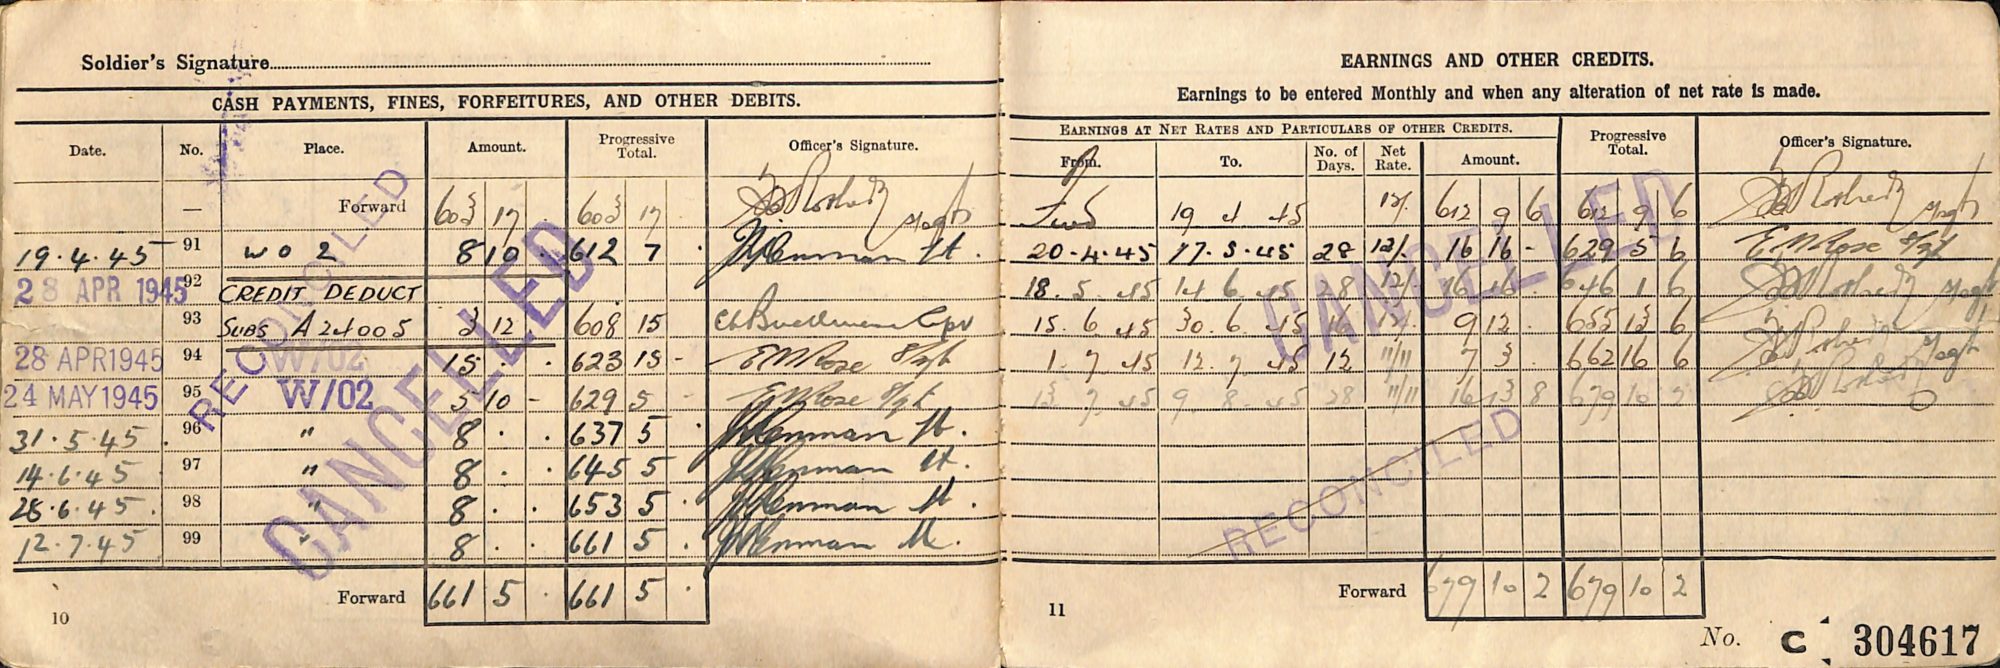 Soldier's Signature
CASH PAYMENTS, FINES, FORFEITURES, AND OTHER DEBITS.
Date. No. Place. Amount. Progressive Total. Officer's Signature.
— Forward 603 17 . 603 17 .
19.4.45 91 W O 2 8 10 . 612 7 .
28 APR 1945 92 CREDIT DEDUCT
93 SUBS A24005 3 12 . 608 15
28 APR 1945 94 W/02 15 . . 623 15 - E M Rose
24 MAY 1945 95 W/02 5 10 - 629 5 - E M Rose
31.5.45 . 96 " 8 . . 637 5 .
14.6.45 97 " 8 . . 645 5 .
28.6.45 . 98 " 8 . . 653 5 .
12.7.45 99 " 8 . . 661 5 .
Forward 661 5 . 661 5 .
10
RECONCILED
CANCELLED
EARNINGS AND OTHER CREDITS.
Earnings to be entered Monthly and when any alteration of net rate is made.
EARNINGS AT NET RATES AND PARTICULARS OF OTHER CREDITS. Progressive Total. Officer's Signature.
From. To. No. of Days. Net Rate. Amount.
Fwd 19 4 45 12/. 612 9 6 612 9 6
20.4.45 17.5.45 28 12/. 16 16 - 629 5 6 E M Rose
18.5.45 14 6 45 28 12/. 16 16 . 646 1 6
15.6.45 30.6.45 16 12/. 9 12 . 655 13 6
1.7.45 12.7.45 12 11/11 7 3 . 662 16 6
13 7 45 9.8.45 28 11/11 16 13 8 679 10 2
CANCELLED
RECONCILED
Forward 679 10 2 679 10 2
11
No. C 304617